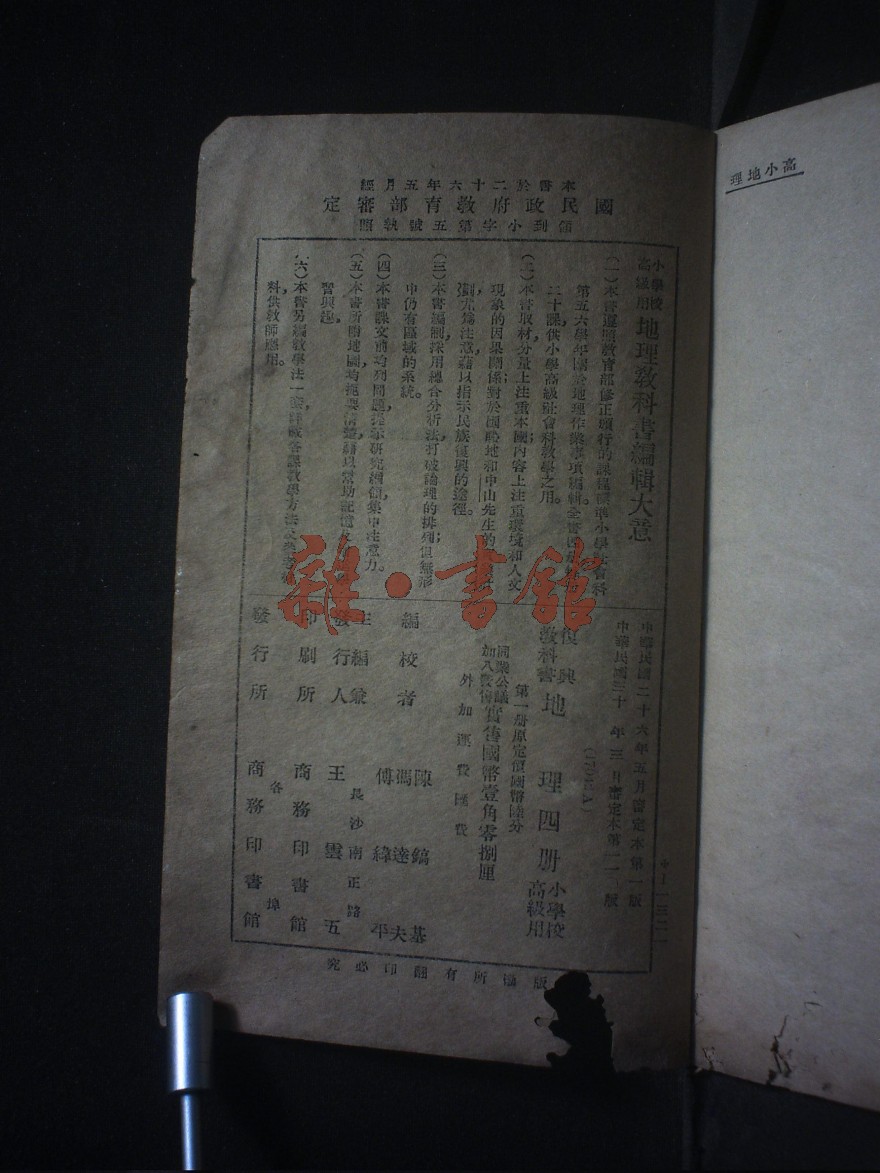 本書於二十六年五月經
國民政府教育部審定
領到小字第五號執照
小學校高級用 地理教科書編輯大意
(一)本書遵照教育部修正頒行的課程標準小學社會科
第五六學年關於地理作業事項編輯全書
二十課供小學高級社會科教學之用。
(二)本書取材分量上注重本國內容上注重環境和人文
現象的因果關係對於國恥地和中山先生的
劃尤為注意藉以指示民族復興的途徑。
(三)本書編制採用綜合分析法打破論理的排列但無形
中仍有區域的系統。
(四)本書課文前均列問題提示研究綱領集中注意力。
(五)本書所附地圖均扼要清楚藉以幫助記憶
習興趣。
(六)本書另編教學法一套詳載各課教學方法
料供教師應用。
中華民國二十六年五月審定本第一版
中華民國三十年三月審定本第一一版
復興教科書 地理四册 小學校高級用
第一册原定價國幣陸分
同業公議加八發售實售國幣壹角零捌厘
外加運費匯費
編校者 陳鎬基 馮達夫 傅緯平
主編兼發行人 王雲五
長沙南正路
印刷所 商務印書館
發行所 各埠 商務印書館
版權所有翻印必究
高小地理
雜·書館